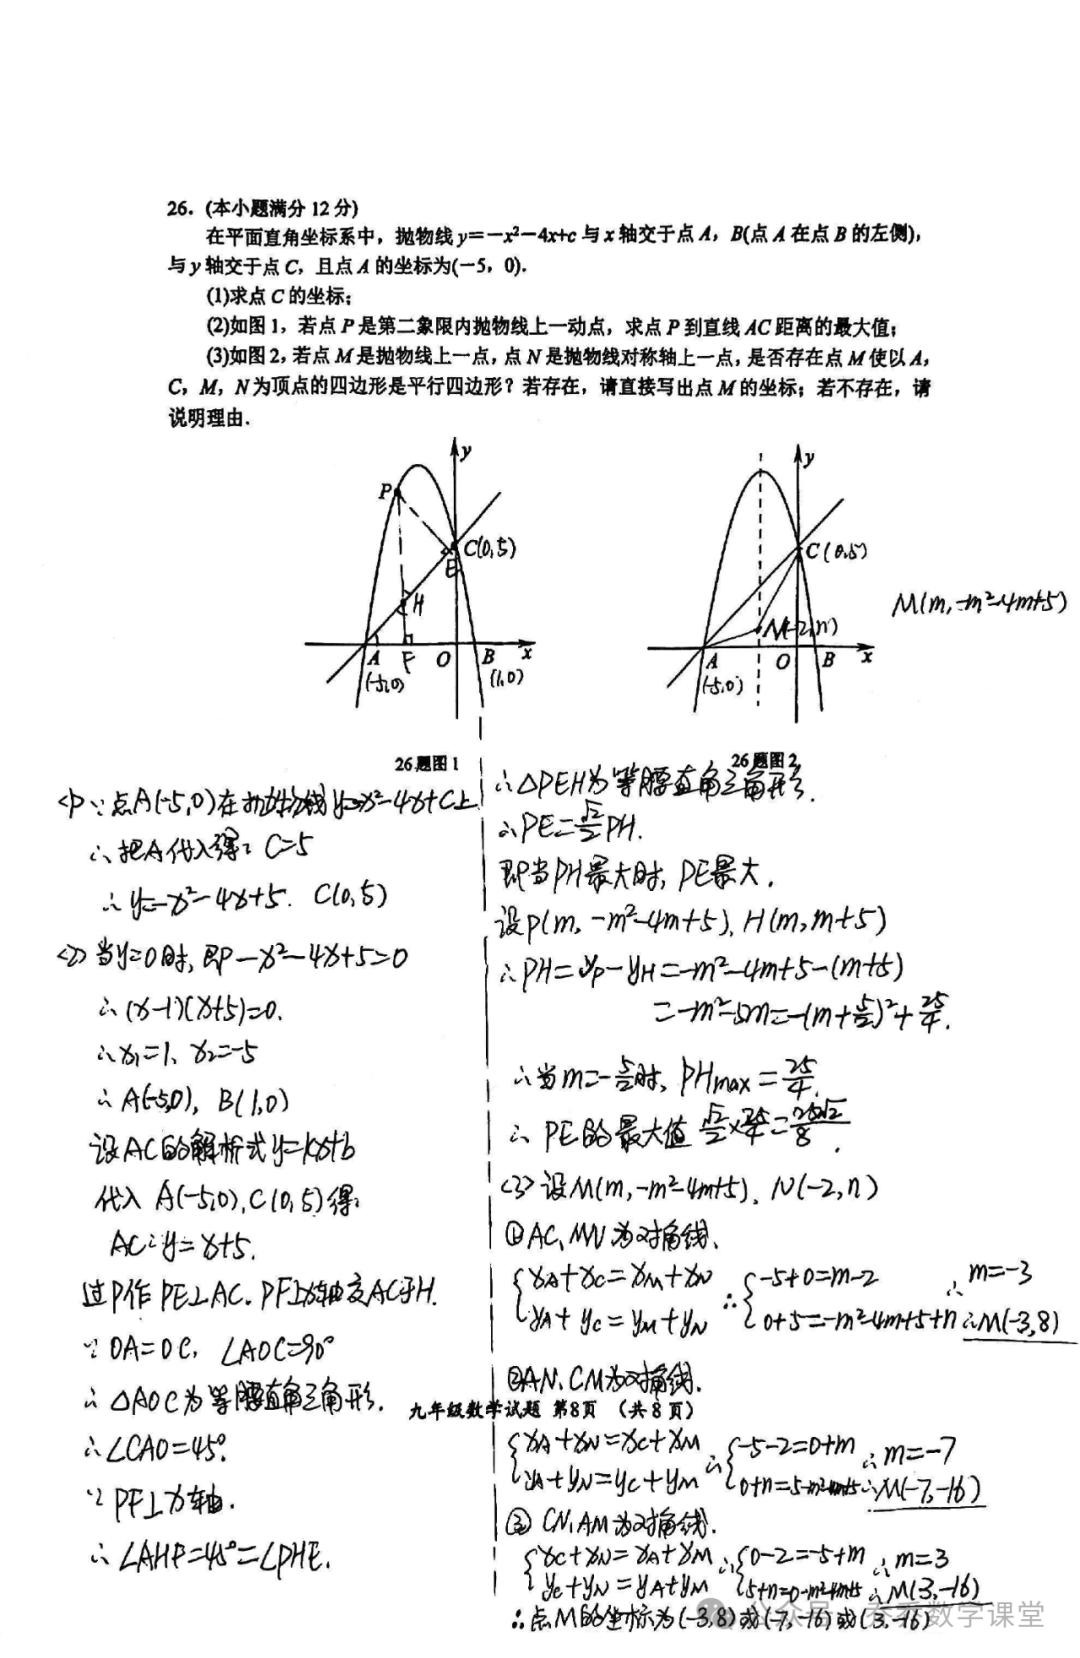 26. (本小题满分 12 分)
在平面直角坐标系中，抛物线 y=－x²－4x+c 与 x 轴交于点 A，B(点 A 在点 B 的左侧)，
与 y 轴交于点 C，且点 A 的坐标为(－5，0).
(1)求点 C 的坐标；
(2)如图 1，若点 P 是第二象限内抛物线上一动点，求点 P 到直线 AC 距离的最大值；
(3)如图 2，若点 M 是抛物线上一点，点 N 是抛物线对称轴上一点，是否存在点 M 使以 A，
C，M，N 为顶点的四边形是平行四边形？若存在，请直接写出点 M 的坐标；若不存在，请
说明理由.
y
P
C(0,5)
E
H
A F O B x
(-5,0) (1,0)
26题图 1
y
C(0,5)
M(m,-m²-4m+5)
N(-2,n)
A O B x
(-5,0)
26题图 2
<1> ∵点A(-5,0)在抛物线y=-x²-4x+c上
∴把A代入得: C=5
∴y=-x²-4x+5. C(0,5)
<2> 当y=0时, 即-x²-4x+5=0
∴(x-1)(x+5)=0.
∴x₁=1, x₂=-5
∴A(-5,0), B(1,0)
设AC的解析式y=kx+b
代入 A(-5,0), C(0,5)得:
AC:y=x+5.
过P作PE⊥AC. PF⊥x轴交AC于H.
∵OA=OC, ∠AOC=90°
∴△AOC为等腰直角三角形.
∴∠CAO=45°
∵PF⊥x轴.
∴∠AHF=45°=∠PHE.
∴△PEH为等腰直角三角形.
∴PE=√2/2 PH.
即当PH最大时, PE最大.
设P(m, -m²-4m+5), H(m,m+5)
∴PH=yP-yH=-m²-4m+5-(m+5)
=-m²-5m=-(m+5/2)²+25/4.
∴当m=-5/2时, PHmax=25/4.
∴PE的最大值 √2/2×25/4=25√2/8.
<3>设M(m,-m²-4m+5), N(-2,n)
①AC、MN为对角线.
{xA+xC=xM+xN ∴{-5+0=m-2 ∴m=-3
yA+yC=yM+yN 0+5=-m²-4m+5+n ∴M(-3,8)
②AN、CM为对角线.
九年级数学试题 第8页 （共 8 页）
{xA+xN=xC+xM ∴{-5-2=0+m ∴m=-7
yA+yN=yC+yM 0+n=5-m²-4m+5 ∴M(-7,-16)
③CN、AM为对角线.
{xC+xN=xA+xM ∴{0-2=-5+m ∴m=3
yC+yN=yA+yM 5+n=0-m²-4m+5 ∴M(3,-16)
∴点M的坐标为(-3,8)或(-7,-16)或(3,-16)
数学课堂